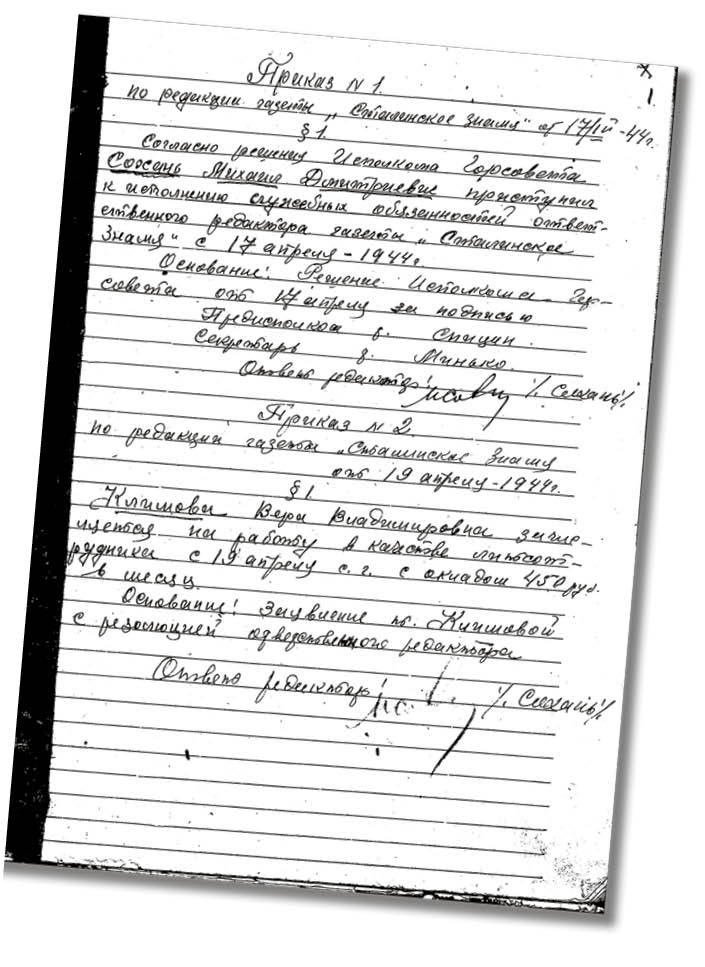 7
1.
Приказ N 1.
по редакции газеты „Сталинское знамя" от 17/IV-44г.
§ 1.
Согласно решения Исполкома Горсовета
Сохань Михаил Дмитриевич приступил
к исполнению служебных обязанностей ответ-
ственного редактора газеты „Сталинское
Знамя" с 17 апреля-1944г.
Основание: Решение Исполкома Гор-
совета от 17 апреля за подписью
Предисполкома т. Спицин.
Секретарь т. Минько.
Ответ редактор /. Сохань/.
Приказ N 2.
по редакции газеты „Сталинское Знамя
от 19 апреля-1944г.
§ 1.
Климова Вера Владимировна зачис-
ляется на работу в качестве литсот-
рудника с 19 апреля с.г. с окладом 450 руб.
в месяц.
Основание: Заявление т. Климовой
с резолюцией ответственного редактора
Ответ редактор /. Сохань/.